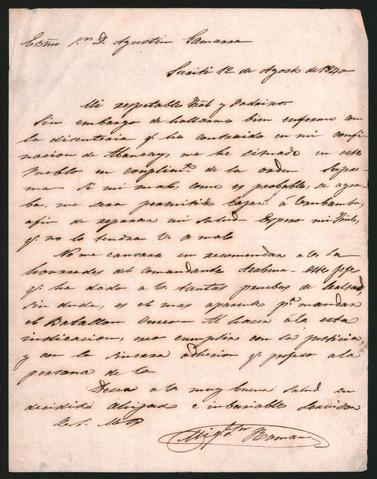 Exmo Sr. D. Agustin Gamarra
12 de Agosto de 1840
Mi respetable Gral y Padrino
Sin embargo de hallarme bien enfermo con
la disenteria q. ha contraido en mi confi-
nacion de Abancay, me he situado en este
Pueblo en cumplim.to de la orden Supre-
ma. Si mi mal, como es probable, se agra-
ba, me sera permitido bajar á
afin de reparar mi salud. Espero mi Gral,
q. no lo tendra V. a mal.
No me cansaré en recomendar a V. la
honrades del comandante este Gefe
q. ha dado a V. tantas pruebas de lealtad,
sin duda, es el mas aparente p.a mandar
el Batallon Al hacer á V. esta
indicacion, creo cumplir con la justicia,
y con la sincera adhesion q. profeso a la
persona de V.
Desea a V. muy buena salud su
decidido ahijado é imbariable servidor
Q. S. M. B.
Mig.l San Roman